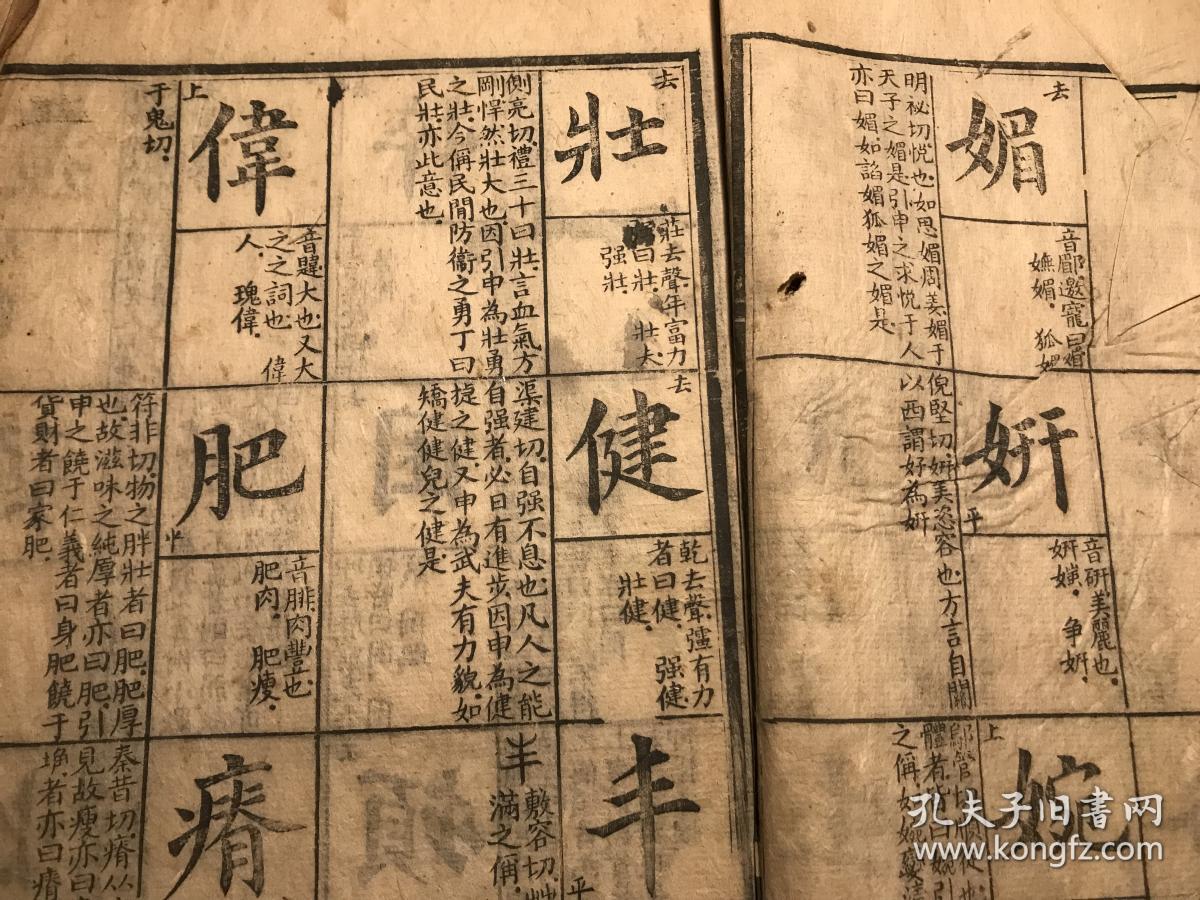 去
媚
音郿邀寵曰媚
嫵媚。狐媚
明祕切悅也如思媚周姜媚于
天子之媚是引申之求悅于人
亦曰媚如諂媚狐媚之媚是
姸
平
音研美麗也。
姸媸。争姸。
倪堅切姸美恣容也方言自關
以西謂好為姸
上
婉
去
壯
莊去聲年富力
曰壯。壯夫
强壯。
側亮切。禮三十曰壯言血氣方
剛悍然壯大也因引申為壯勇
之壯今稱民間防衞之勇丁曰
民壯亦此意也。
去
健
乾去聲彊有力
者曰健。强健
壯健。
渠建切自强不息也凡人之能
自强者必日有進步因申為健
捷之健又申為武夫有力貌如
矯健健兒之健是
丰
平
敷容切艸
滿之稱
上
偉
音韙大也又大
之之詞也 偉
人。瑰偉。
于鬼切。
肥
平
音腓肉豐也
肥肉。肥瘦。
符非切物之胖壯者曰肥肥厚
也故滋味之純厚者亦曰肥引
申之饒于仁義者曰身肥饒于
貨財者曰家肥。
瘠
秦昔切瘠
見故瘦亦曰
者亦曰瘠
孔夫子旧書网
www.kongfz.com